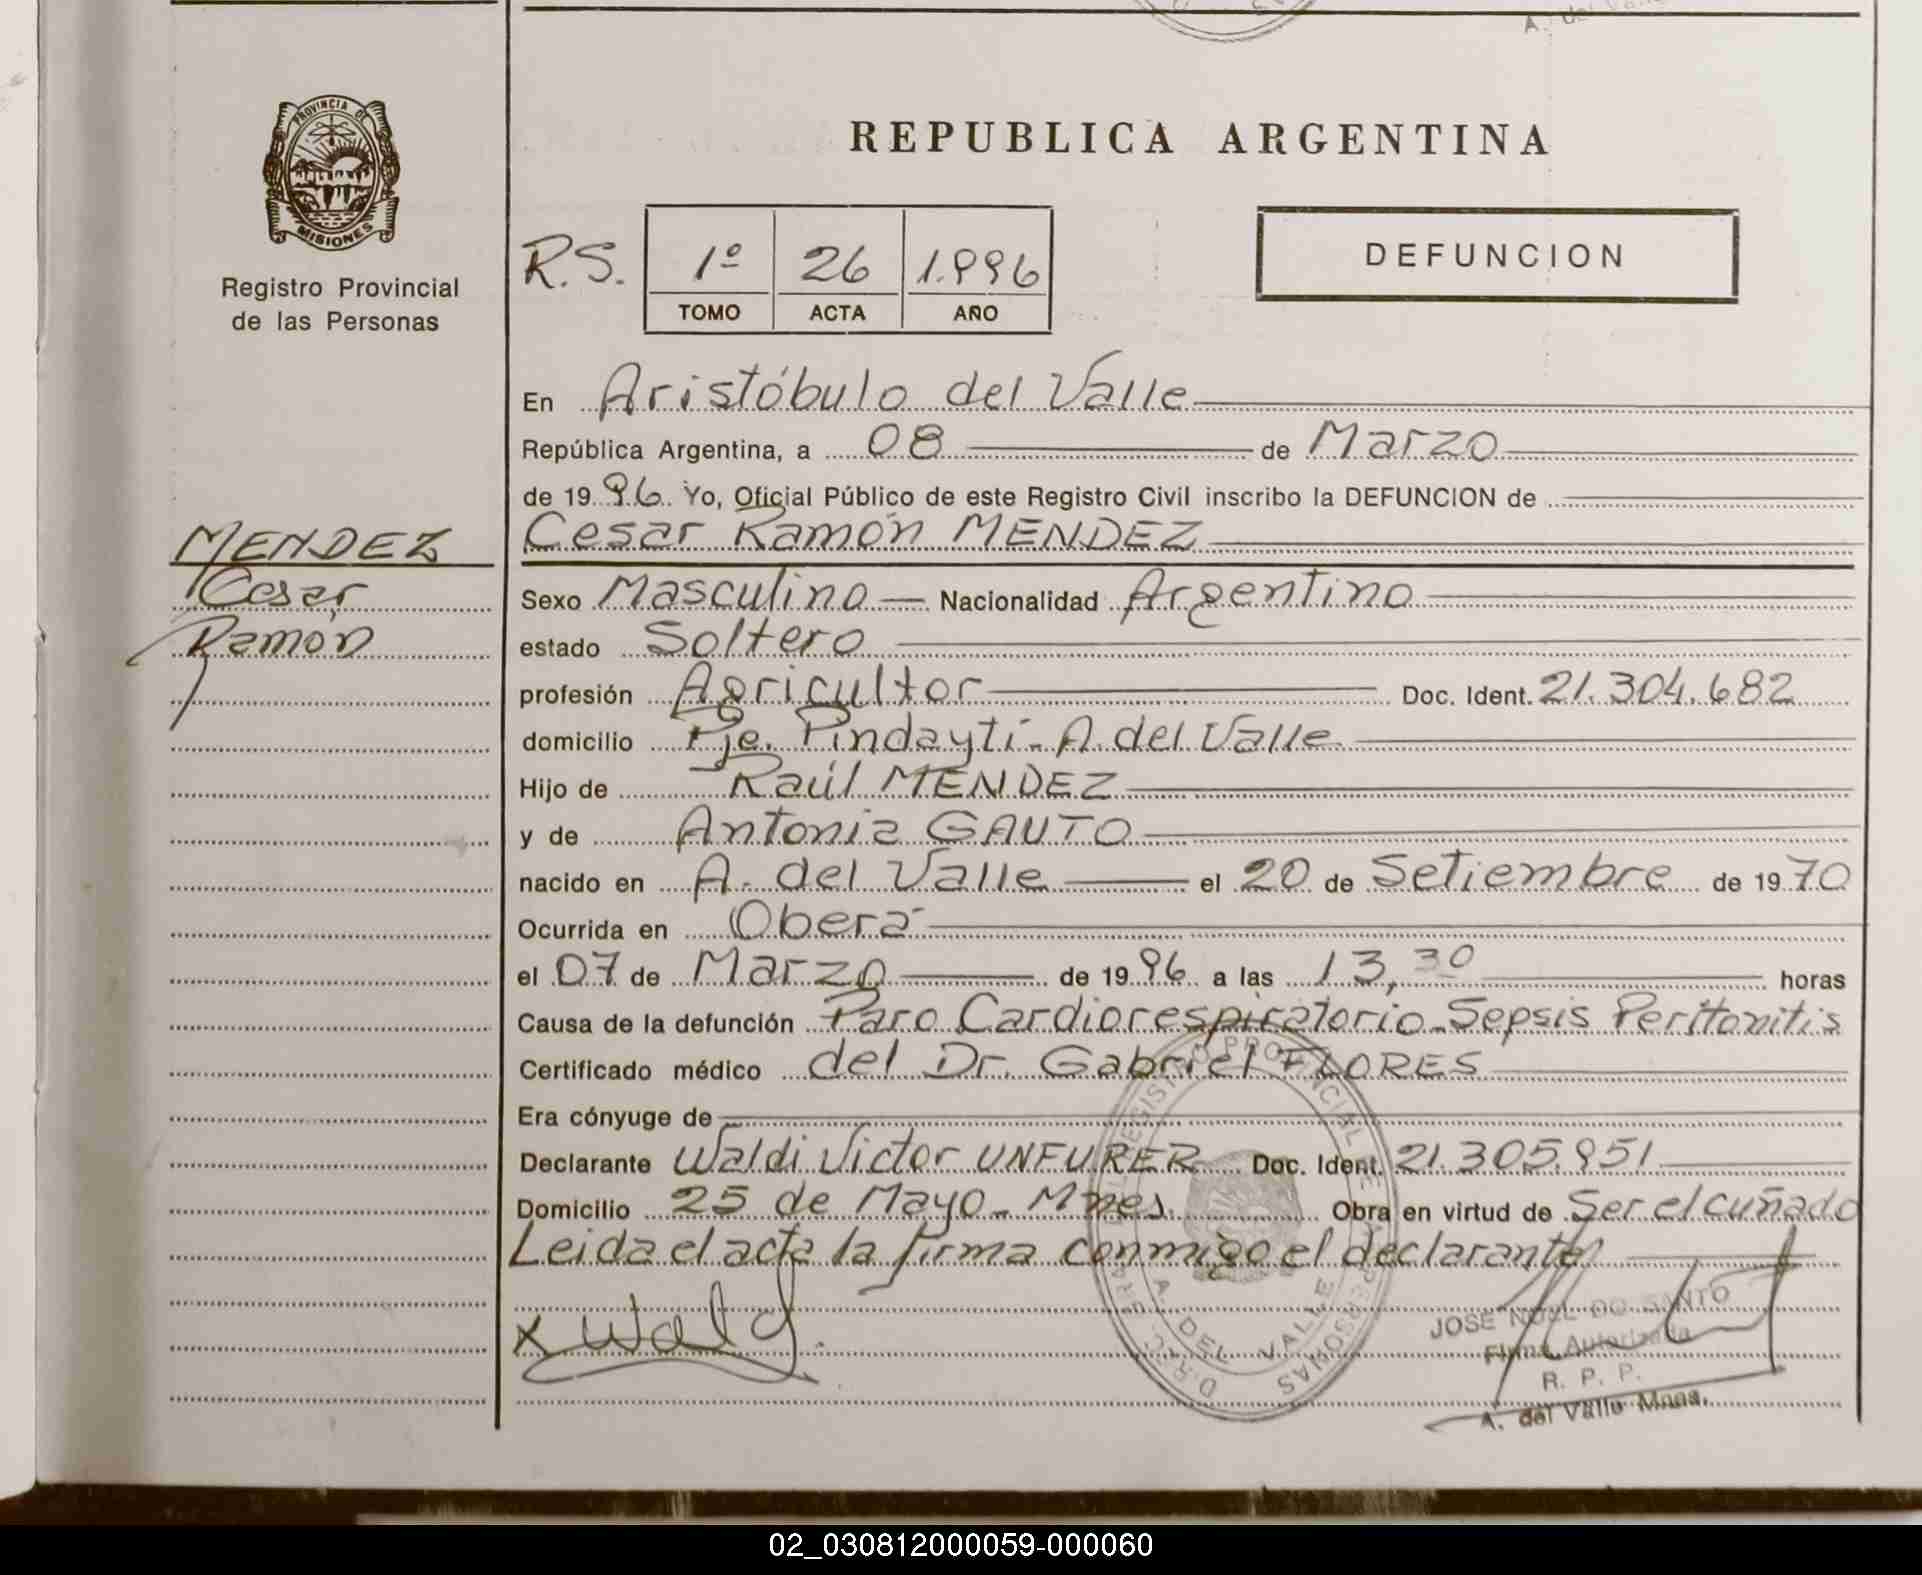 A. del Valle
PROVINCIA DE
MISIONES
Registro Provincial
de las Personas
REPUBLICA ARGENTINA
R.S. 1º 26 1.996
TOMO ACTA AÑO
DEFUNCION
En Aristóbulo del Valle
República Argentina, a 08 de Marzo
de 1996 Yo, Oficial Público de este Registro Civil inscribo la DEFUNCION de
MENDEZ
Cesar
Ramón
Cesar Ramón MENDEZ
Sexo Masculino Nacionalidad Argentino
estado Soltero
profesión Agricultor Doc. Ident. 21.304.682
domicilio Pje. Pindaytí - A. del Valle
Hijo de Raúl MENDEZ
y de Antonia GAUTO
nacido en A. del Valle el 20 de Setiembre de 1970
Ocurrida en Oberá
el 07 de Marzo de 1996 a las 13,30 horas
Causa de la defunción Paro Cardiorespiratorio - Sepsis Peritonitis
Certificado médico del Dr. Gabriel FLORES
Era cónyuge de
Declarante Waldi Victor UNFURER Doc. Ident. 21.305.951
Domicilio 25 de Mayo - Mnes. Obra en virtud de Ser el cuñado
Leida el acta la firma conmigo el declarante
x Wald
REGISTRO PROVINCIAL DE PERSONAS
A. DEL VALLE
JOSE NOEL DO SANTO
Firma Autorizada
R. P. P.
A. del Valle Mnes.
02_030812000059-000060